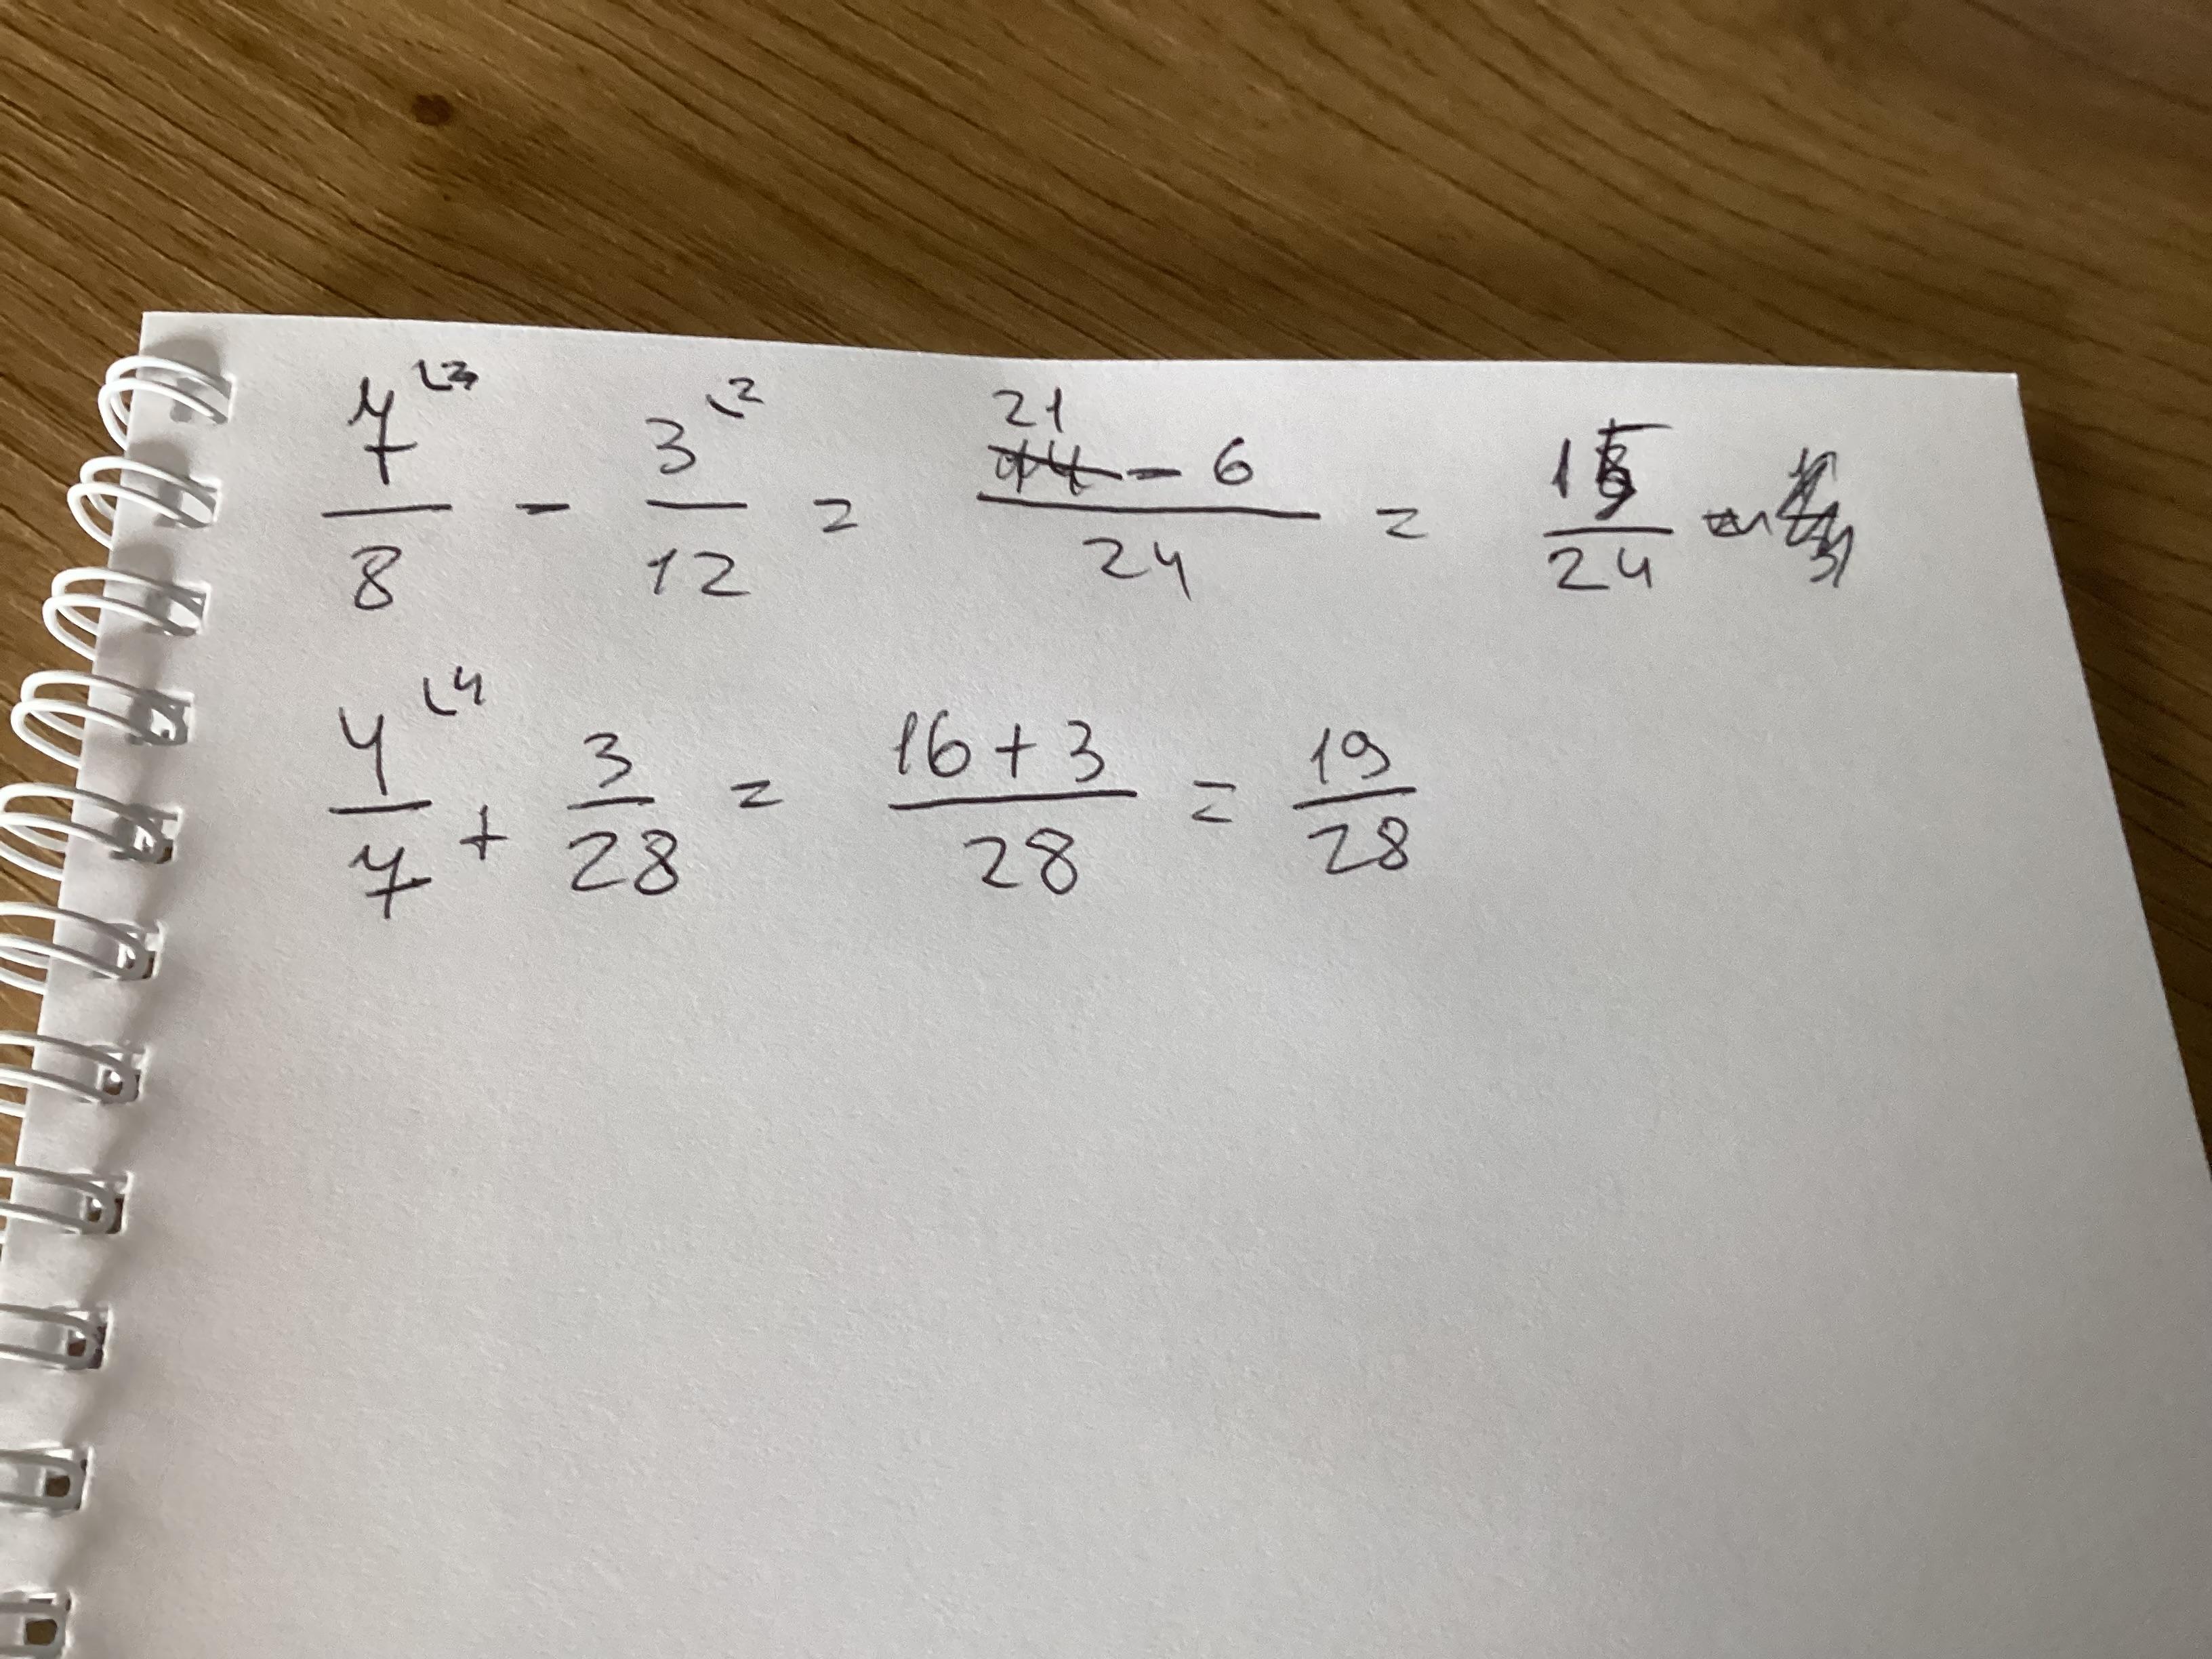 7⌞3/8 - 3⌞2/12 = 21 - 6/24 = 15/24
4⌞4/7 + 3/28 = 16+3/28 = 19/28